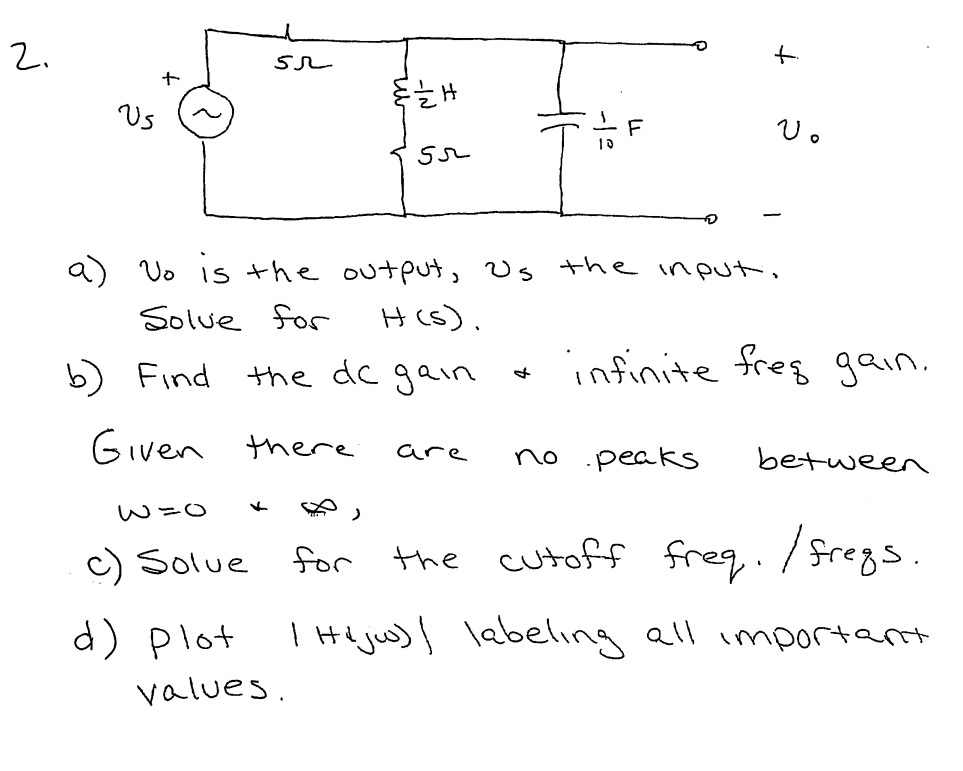 2.
5Ω
+
Vs
½ H
5Ω
1/10 F
+
Vo
-
a) Vo is the output, Vs the input.
Solve for H(s).
b) Find the dc gain & infinite freq gain.
Given there are no peaks between
w=0 & ∞,
c) Solve for the cutoff freq. / freqs.
d) plot |H(jw)| labeling all important
values.